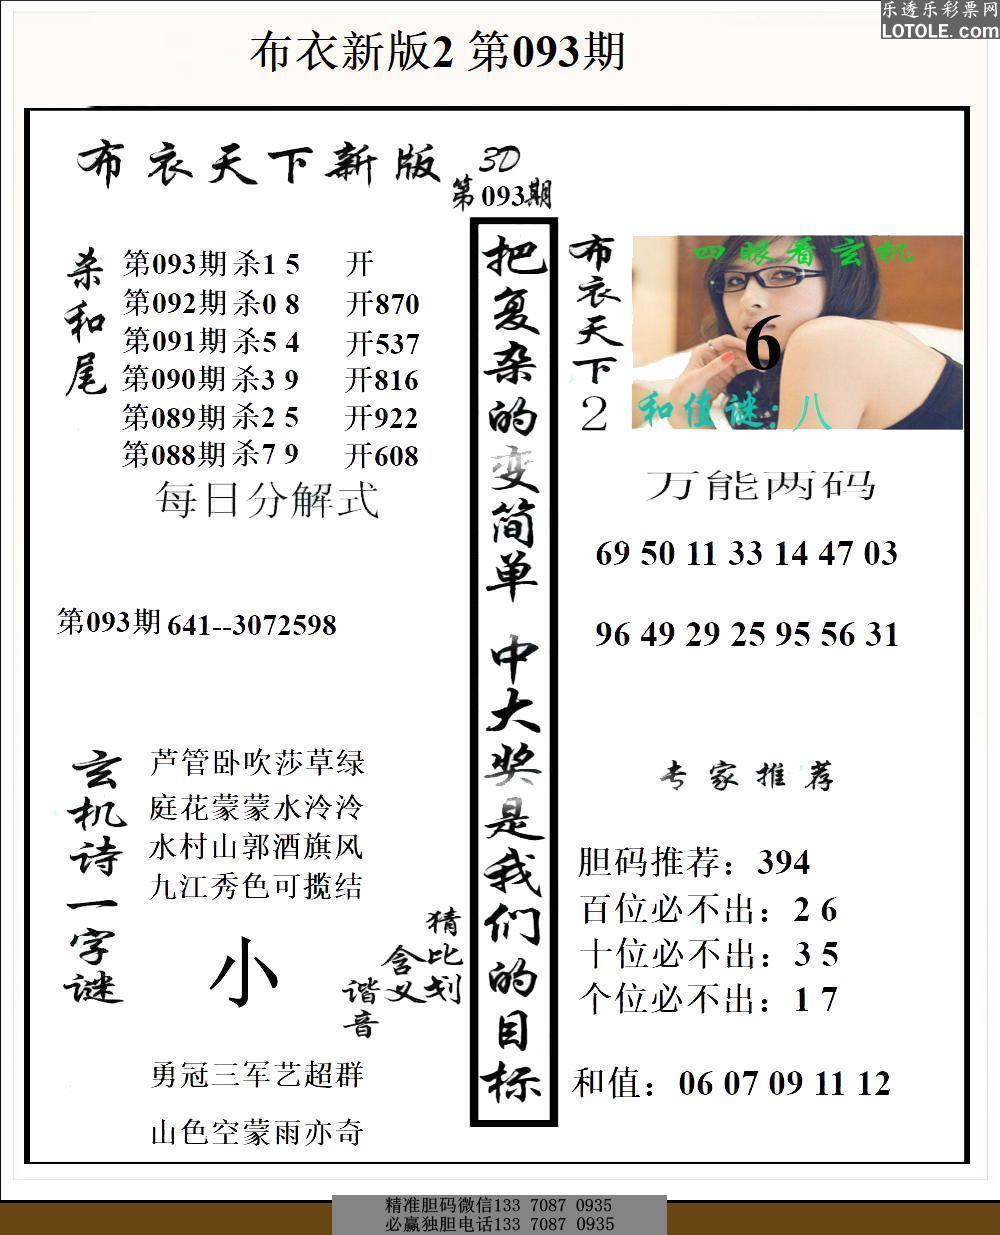 乐透乐彩票网
LOTOLE.com
布衣新版2 第093期
布衣天下新版 3D
第093期
杀和尾
第093期 杀1 5 开
第092期 杀0 8 开870
第091期 杀5 4 开537
第090期 杀3 9 开816
第089期 杀2 5 开922
第088期 杀7 9 开608
每日分解式
第093期 641--3072598
玄机诗一字谜
芦管卧吹莎草绿
庭花蒙蒙水泠泠
水村山郭酒旗风
九江秀色可揽结
小
猜比划
含义
谐音
勇冠三军艺超群
山色空蒙雨亦奇
把复杂的变简单 中大奖是我们的目标
布衣天下2
四眼看玄机
6
和值谜:八
万能两码
69 50 11 33 14 47 03
96 49 29 25 95 56 31
专家推荐
胆码推荐：394
百位必不出：2 6
十位必不出：3 5
个位必不出：1 7
和值：06 07 09 11 12
精准胆码微信133 7087 0935
必赢独胆电话133 7087 0935